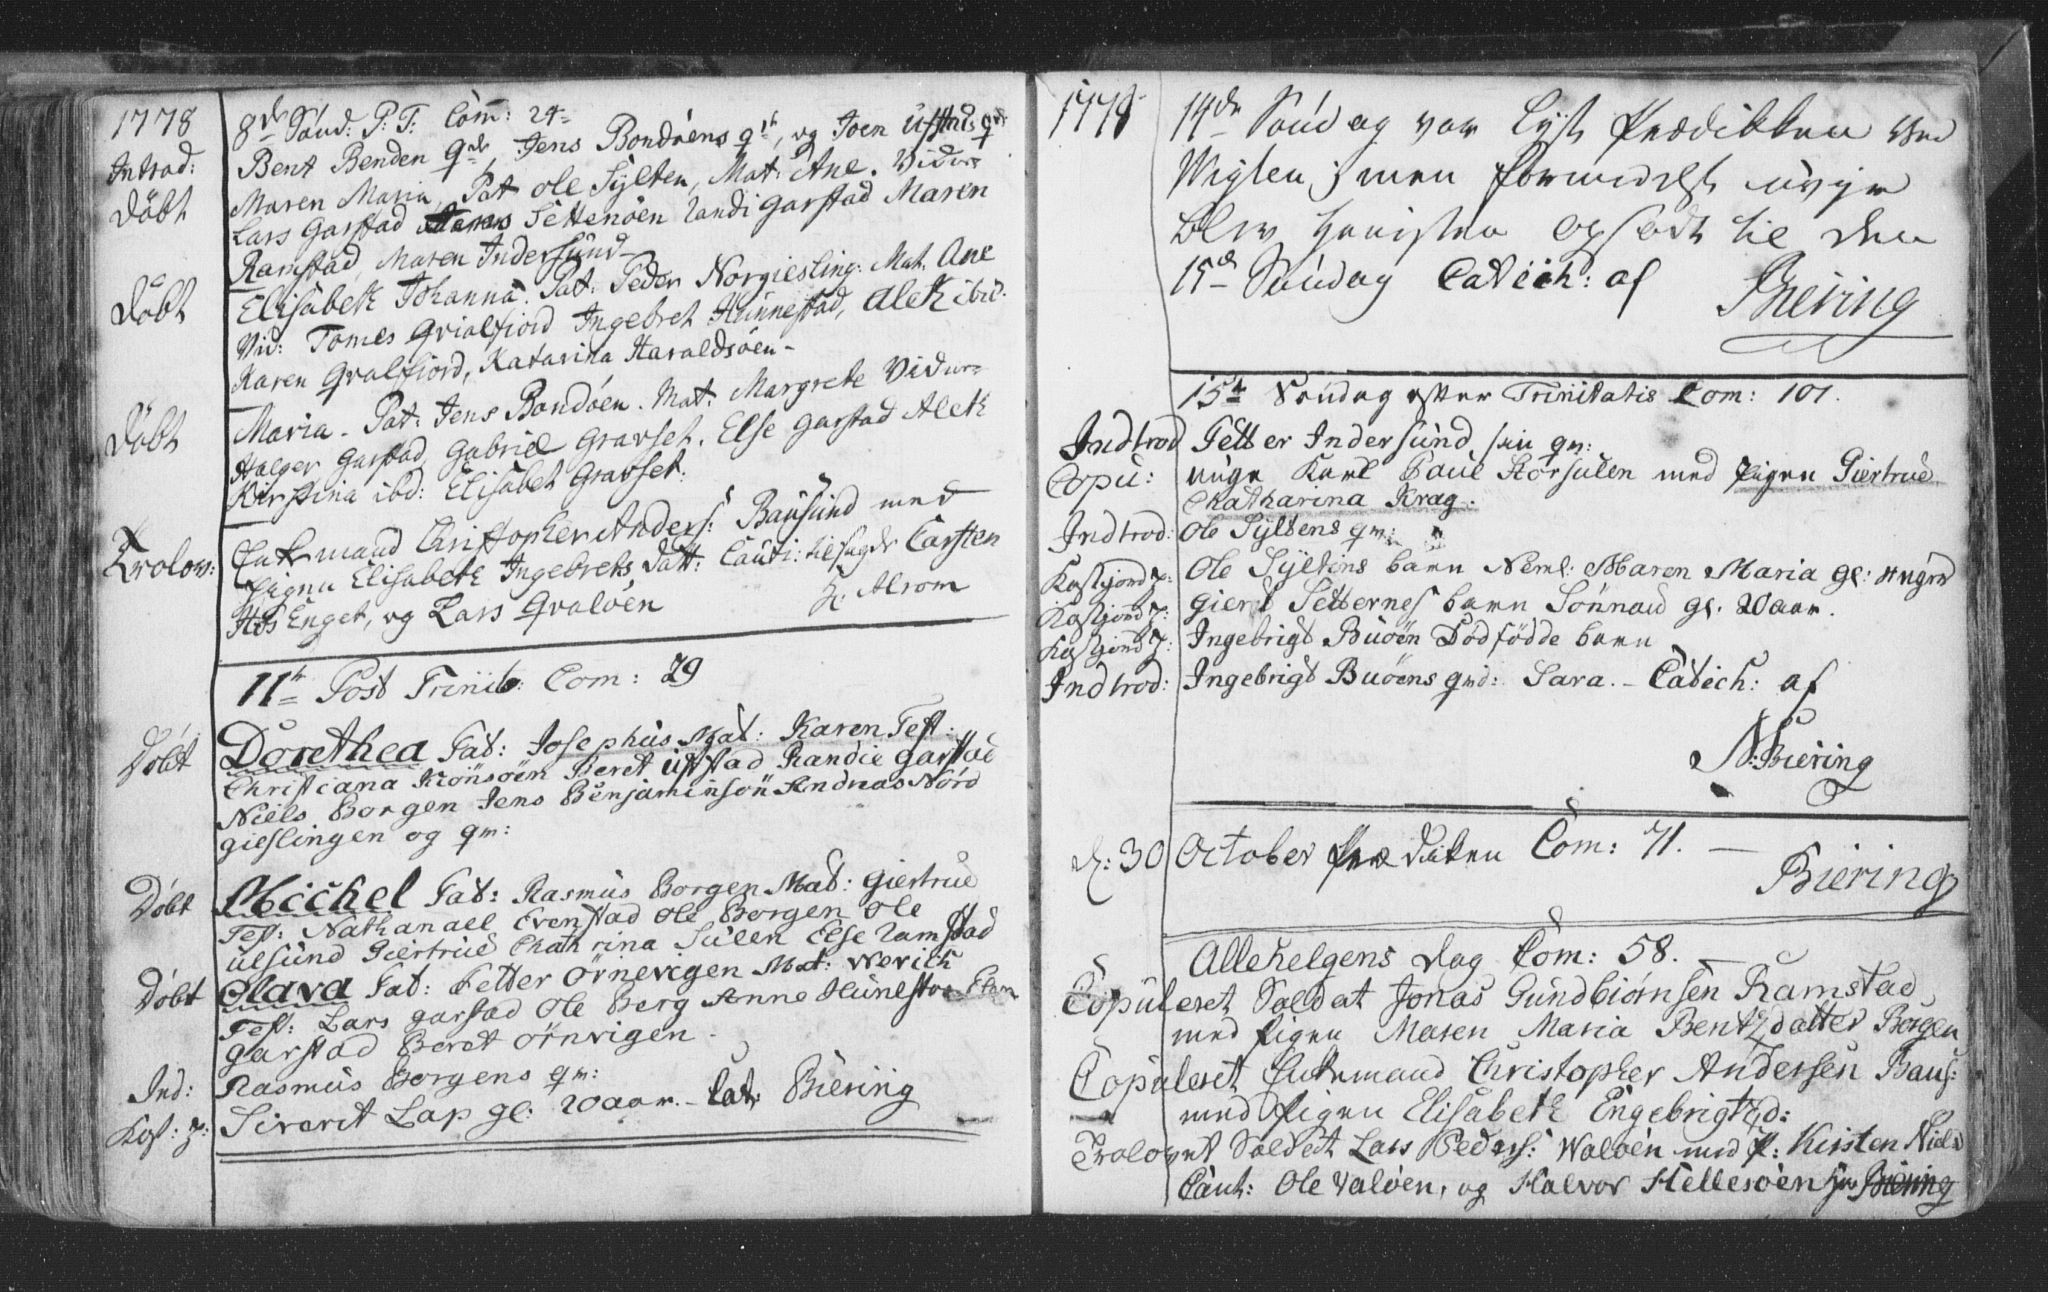 1778
8de Sönd: P: T: Com: 24
Introd: Bent Benden qde, Jens Bondöens qde, og Joen Ufstads qde
Döbt Maren Maria, Pat Ole Sÿlten, Mat: Ane. Vidur
Lars Garstad Settenöen Randi Garstad Maren
Ramstad, Maren Indersund
Döbt Elisabeth Johanna. Pat: Peder Norgiesling. Mat. Ane
Vid: Tomes Qvalfiord Ingebret Hunnestad, Aleth ibid.
Karen Qvalfiord, Katarina Haraldsöen
Döbt Maria. Pat: Jens Bondöen. Mat: Margrete Vidur
Holger Garstad, Gabriel Gravset, Else Garstad Aleth
Kirstina ibd: Elisabet Gravset.
Trolov: Enkemand Christopher Anders: Bausund med
Pigen Elisabeth Ingebrets Datt: Cauti: Carsten
Enget, og Lars Qvaloen H: Alrom
11te Post Trinit: Com: 29
Döbt Dorethea Fat: Josephus Mat: Karen Test:
Christiana Beret Ufstad Randie Garstad
Niels Borgen Jens Benjaminsön Andreas Nord
gieslingen og qm:
Döbt Michel Fat: Rasmus Borgen Mat: Giertrue
Test: Nathanael Evenstad Ole Borgen Ole
Ulsund Giertrue Chathrina Sulen Else Ramstad
Döbt Olava Fat: Petter Örnevigen Mat: Werich
Test: Lars Garstad Ole Berg Anne Elen
Garstad Beret Örnvigen.
Ind: Rasmus Borgens qm:
Kast: p: Siverit Lap gl: 20 aar. Cat: Biering
1778
14de Söndag var Lyst Prædikken ved
Wigten; men formedelst uveyr
blev Tienisten opsadt til den
15de Söndag Catech: af
Biering
15de Söndag efter Trinitatis Com: 101.
Indtrod Petter Indersund sin qm:
Copu: unge Karl Paul Horsulen med Pigen Giertrue
Chatharina Krag.
Indtrod: Ole Syltens qm:
Kastjord p: Ole Syltins barn Neml: Maren Maria gl: uger
Kastjord p: Giert Setternes barn Sönnau gl. 20 aar.
Kastjord p: Ingebrigt Buöen Dödfödde barn
Indtrod: Ingebrigt Buöens qvd: Sara. – Catech: af
N: Biering
d: 30 October Præediken Com: 71. —
Biering
Allehelgens Dag Com: 58. —
Copuleret Soldat Jonas Gundbiörnsen Ramstad
med Pigen Maren Maria Bentzdatter Borgen
Copuleret Enkemand Christopher Andersen Baus:
med Pigen Elisabeth Engebrigtzd:
Trolovet Soldat Lars Peders: Waloen med P: Kirsten Niels
Caut: Ole Valoen, og Halvor Hellesöen Hr Biering